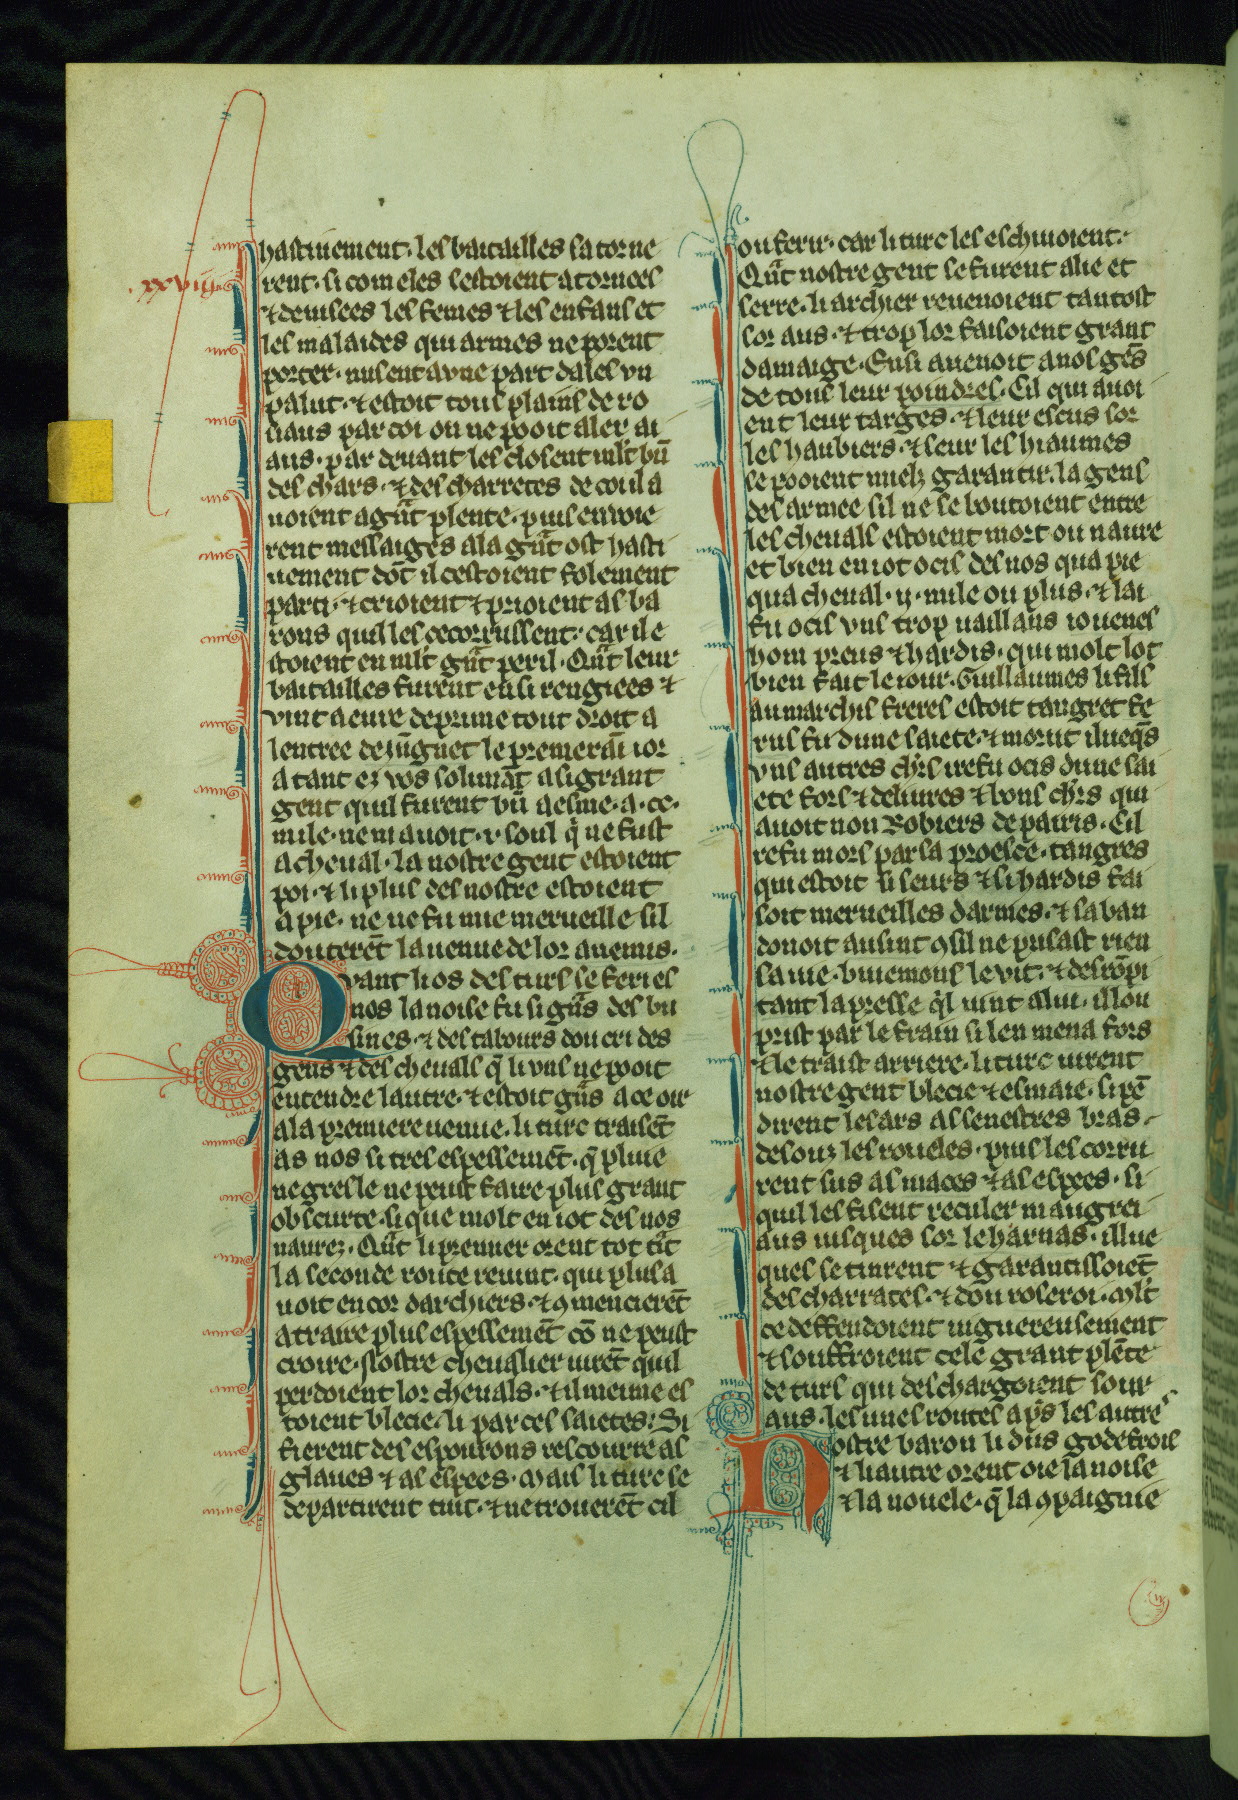 .xxviii.
hastiuement. les batailles sa torne
rent. si com eles sestoient atornees
⁊ deuisees les femes ⁊ les enfans et
les malaides qui armes ne porent
porter. misent a vne part dales vn
palut. ⁊ estoit tous plains de ro
siaus par coi on ne pooit aler ai
aus. par deuant les closent ml't bn̄
des chars. ⁊ des charretes de coi il a
uoient a gn̄t plente. puis enuoie
rent messaiges a la gn̄t ost hasti
uement dōt il cestoient folement
parti. ⁊ crioient ⁊ prioient as ba
rons quil les cecorrussent. car il e
stoient en ml't gn̄t peril. Qn̄t leur
batailles furēt ensi rengiees ⁊
vint a eure de prime tout droit a
lentree de iūguet le premerāī ior
a tant ez vos solimāt a si grant
gent quil furent bn̄ a esme. a. ce.
mile. ne ni auoit .i. soul q̄ ne fust
a cheual. la nostre gent estoient
poi. ⁊ li plus des nostre estoient
a pie. ne ne fu mie merueille sil
douterēt la uenue de lor anemis.
Quant li os des turs se feri es
nos la noise fu si grās des bu
sines. ⁊ des tabours dou cri des
gens ⁊ des cheuals q̄ li vns ne pooit
entendre lautre. ⁊ estoit grās a ce oir
a la premiere uenue. li turc traisēt
as nos si tres espessemēt. q̄ pluie
ne gresle ne peust faire plus grant
obscurte. si que molt en iot des nos
naurez. Qn̄t li premier orent tot t̄it
la seconde route reuint. qui plus a
uoit encor darchiers. ⁊ ꝯmencierēt
a traire plus espessemēt cō ne peust
croire. Nostre cheualier uirēt quil
perdoient lor cheuals. ⁊ il meime es
toient blecie. li par ces saietes. Si
fierent des esporons rescourre as
glaues ⁊ as espees. Mais li turc se
departirent tuit. ⁊ ne trouerēt cil
ou ferir. car li turc les eschiuoient.
Qn̄t nostre gent se furent alie et
serre. li archier reuenoient tantost
sor aus. ⁊ trop lor faisoient grant
damaige. Ensi auenoit a nos gēs
de tous leur poindres. Cil qui auoi
ent leur targes. ⁊ leur escus sor
les haubiers. ⁊ seur les hiaumes
se pooient miels garantir. la gens
desarmee sil ne se boutoient entre
les cheuals estoient mort ou naure
et bien en iot ocis des nos qua pie
qua cheual. ij. mile ou plus. ⁊ lai
fu ocis vns trop uaillans iouenes
hom preus ⁊ hardis. qui molt lot
bien fait le iour. Guillaumes li fils
au marchis freres estoit tangret fe
rus fu dune saiete. ⁊ morut ilueqs
vns autres chr̄s irefu ocis dune sai
ete fors ⁊ deliures ⁊ bons chr̄s qui
auoit non Robiers de pairis. Cil
refu mors par sa proesce. tangres
qui estoit si seurs ⁊ si hardis fai
soit merueilles darmes. ⁊ saban
donoit ausint ꝯ sil ne prisast rien
sa uie. buiemons le vit. ⁊ desrōpi
tant la presse q̄l uint a lui. illou
prist par le frain si len mena fors
⁊ le traist arriere. li turc uirent
nostre gent blecie ⁊ esmaie. si pē
dirent les ars as senestres bras.
desouz les roueles. puis les corru
rent sus as maces ⁊ as espees. si
quil les fisent reculer maugrei
aus iusques sor le harnas. illue
ques se tinrent ⁊ garantissoiēt
des charrates. ⁊ dou roseroi. Ml't
ce deffendoient uiguereusement
⁊ souffroient cele grant plēte
de turs qui deschargoient sour
aus. les unes routes ap̄s les autres
Nostre baron li dus godefrois
⁊ li autre orent oie la noise
⁊ la nouele. q̄ la ꝯpaignie